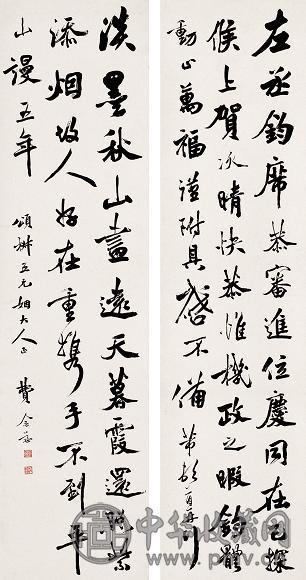 左丞鈞席恭審進位慶同在已探
候上賀冰晴快恭惟機政之暇鈞體
動止萬福謹附具啓不備 芾頓首再拜
淡墨秋山畫遠天暮霞還照紫
添烟故人好在重攜手不到平
山謾五年
五兄姻大人正 費念慈
中华收藏网